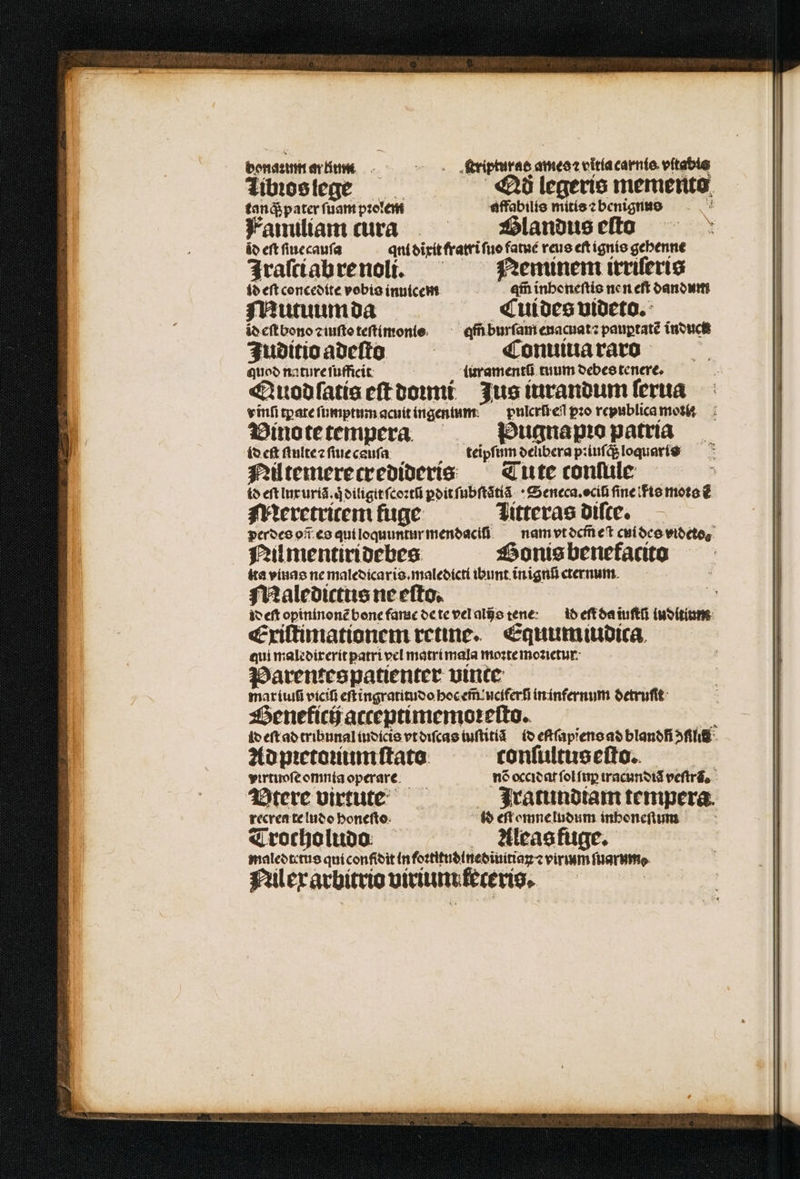 bonarum artium scripturas ames ⁊ vitia carnis vitabis
Libros lege Qd̄ legeris memento
tanq̄ꝫ pater suam prolem affabilis mitis ⁊ benignus
Familiam cura Blandus esto
id est sine causa qui dixit fratri suo fatue reus est ignis gehenne
Irasci ab re noli. Neminem irriseris
id est concedite vobis inuicem qm̄ inhonestis non est dandum
Mutuum da Cui des videto.
id est bono ⁊ iusto testimonio qm̄ bursam euacuat ⁊ pauptatē inducit
Iuditio adesto Conuiua raro
quod nature sufficit iuramentū tuum debes tenere.
Quod satis est dormi Jus iurandum serua
vinū tpate sumptum acuit ingenium pulcrū est pro republica mori
Vino te tempera Pugna pro patria
id est stulte ⁊ sine causa teipsum delibera priusq̄ꝫ loquaris
Nil temere credideris Tu te consule
id est luxuriā. q̇ diligit scortū pdit substātiā Seneca. ociū sine lr̄is mors ē
Meretricem fuge Litteras disce.
perdes oēs qui loquuntur mendaciū nam vt dcm̄ est cui des videto,
Nil mentiri debes Bonis benefacito
ita viuas ne maledicaris. maledicti ibunt in ignū eternum
Maledictus ne esto.
id est opininonē bone fame de te vel alijs tene id est da iustū iuditium
Existimationem retine. Equum iudica
qui maledixerit patri vel matri mala morte morietur
Parentes patienter vince
maximū viciū est ingratitudo hoc em̄ luciferū in infernum detrusit
Beneficij accepti memor esto.
id est ad tribunal iudicis vt discas iustitiā id est sapiens ad blandū ꝯsiliū
Ad pretorium stato consultus esto.
virtuose omnia operare nō occidat sol sup iracundiā vestrā.
Vtere virtute Iracundiam tempera.
recrea te ludo honesto id est omne ludum inhonestum
Trocho ludo Aleas fuge.
maledictus qui confidit in fortitudine diuitiaꝝ ⁊ virium suarum
Nil ex arbitrio virium feceris.